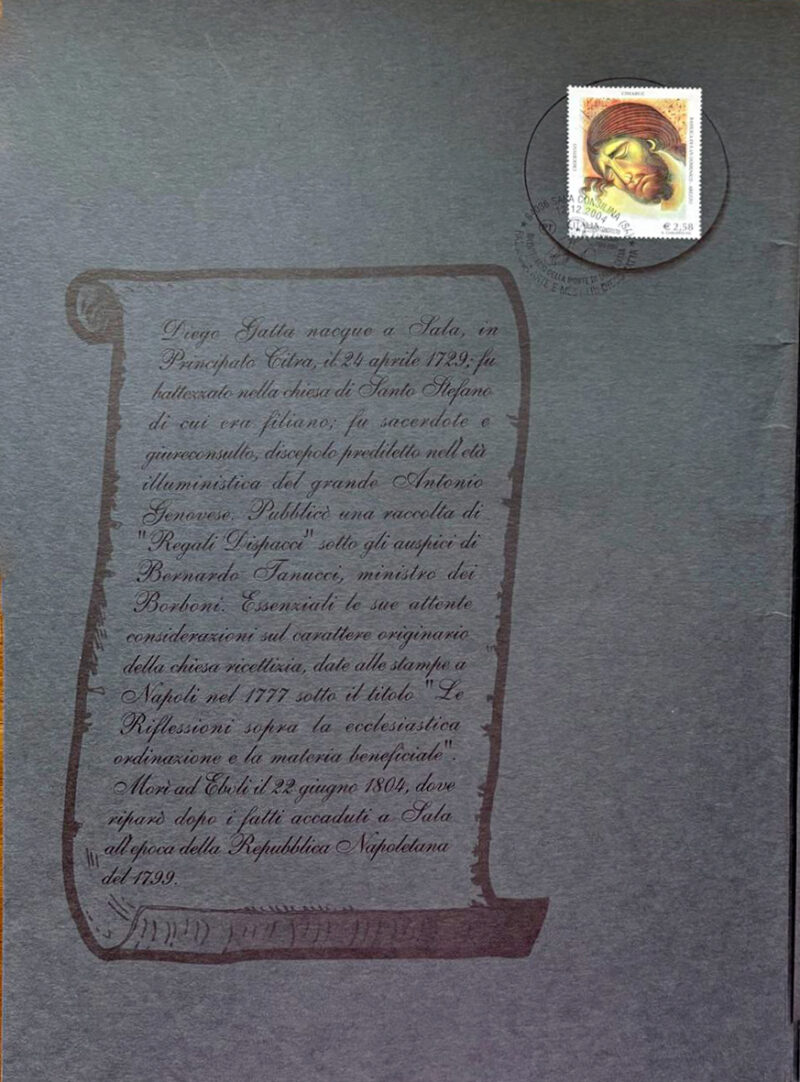 CIMABUE
€ 2,58
ITALIA
84036 SALA CONSILINA (SA)
12.2004
Diego Gatta nacque a Sala, in
Principato Citra, il 24 aprile 1729; fu
battezzato nella chiesa di Santo Stefano
di cui era filiano; fu sacerdote e
giureconsulto, discepolo prediletto nell'età
illuministica del grande Antonio
Genovese. Pubblicò una raccolta di
"Regali Dispacci" sotto gli auspici di
Bernardo Tanucci, ministro dei
Borboni. Essenziali le sue attente
considerazioni sul carattere originario
della chiesa ricettizia, date alle stampe a
Napoli nel 1777 sotto il titolo "Le
Riflessioni sopra la ecclesiastica
ordinazione e la materia beneficiale".
Morì ad Eboli il 22 giugno 1804, dove
riparò dopo i fatti accaduti a Sala
all'epoca della Repubblica Napoletana
del 1799.